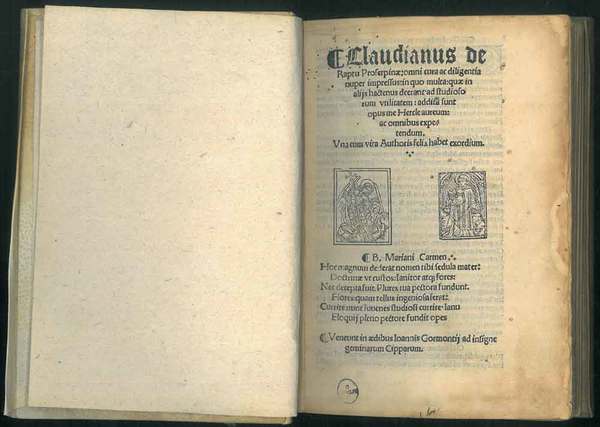 ¶Claudianus de
Raptu Proserpinæ: omni cura ac diligentia
nuper impressus: in quo multa: quæ in
alijs hactenus deerant: ad studioso
rum vtilitatem: addita sunt
opus me Hercle aureum:
ac omnibus expe-
tendum.
Vna cum vita Authoris felix habet exordium.
¶ B. Mariani Carmen.
Hoc magnum dederat nomen tibi sedula mater:
Doctrinæ vt custos: ianitor atq; fores:
Nec decepta fuit. Plures tua pectora fundunt.
Flores quam tellus ingeniosa ferat:
Currite nunc iuuenes studiosi currite: Ianu
Eloquij pleno pectore fundit opes
¶ Veneunt in ædibus Ioannis Gormontij ad insigne
geminarum Cipparum.